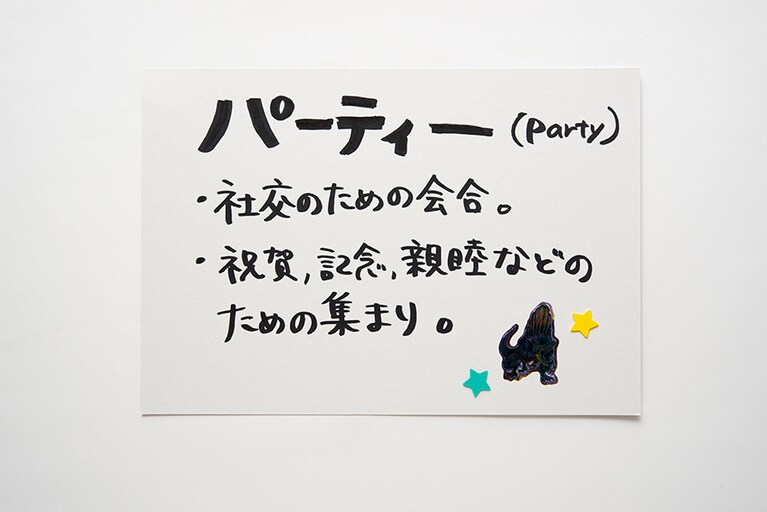 パーティー (party)
・社交のための会合。
・祝賀,記念,親睦などの
ための集まり。